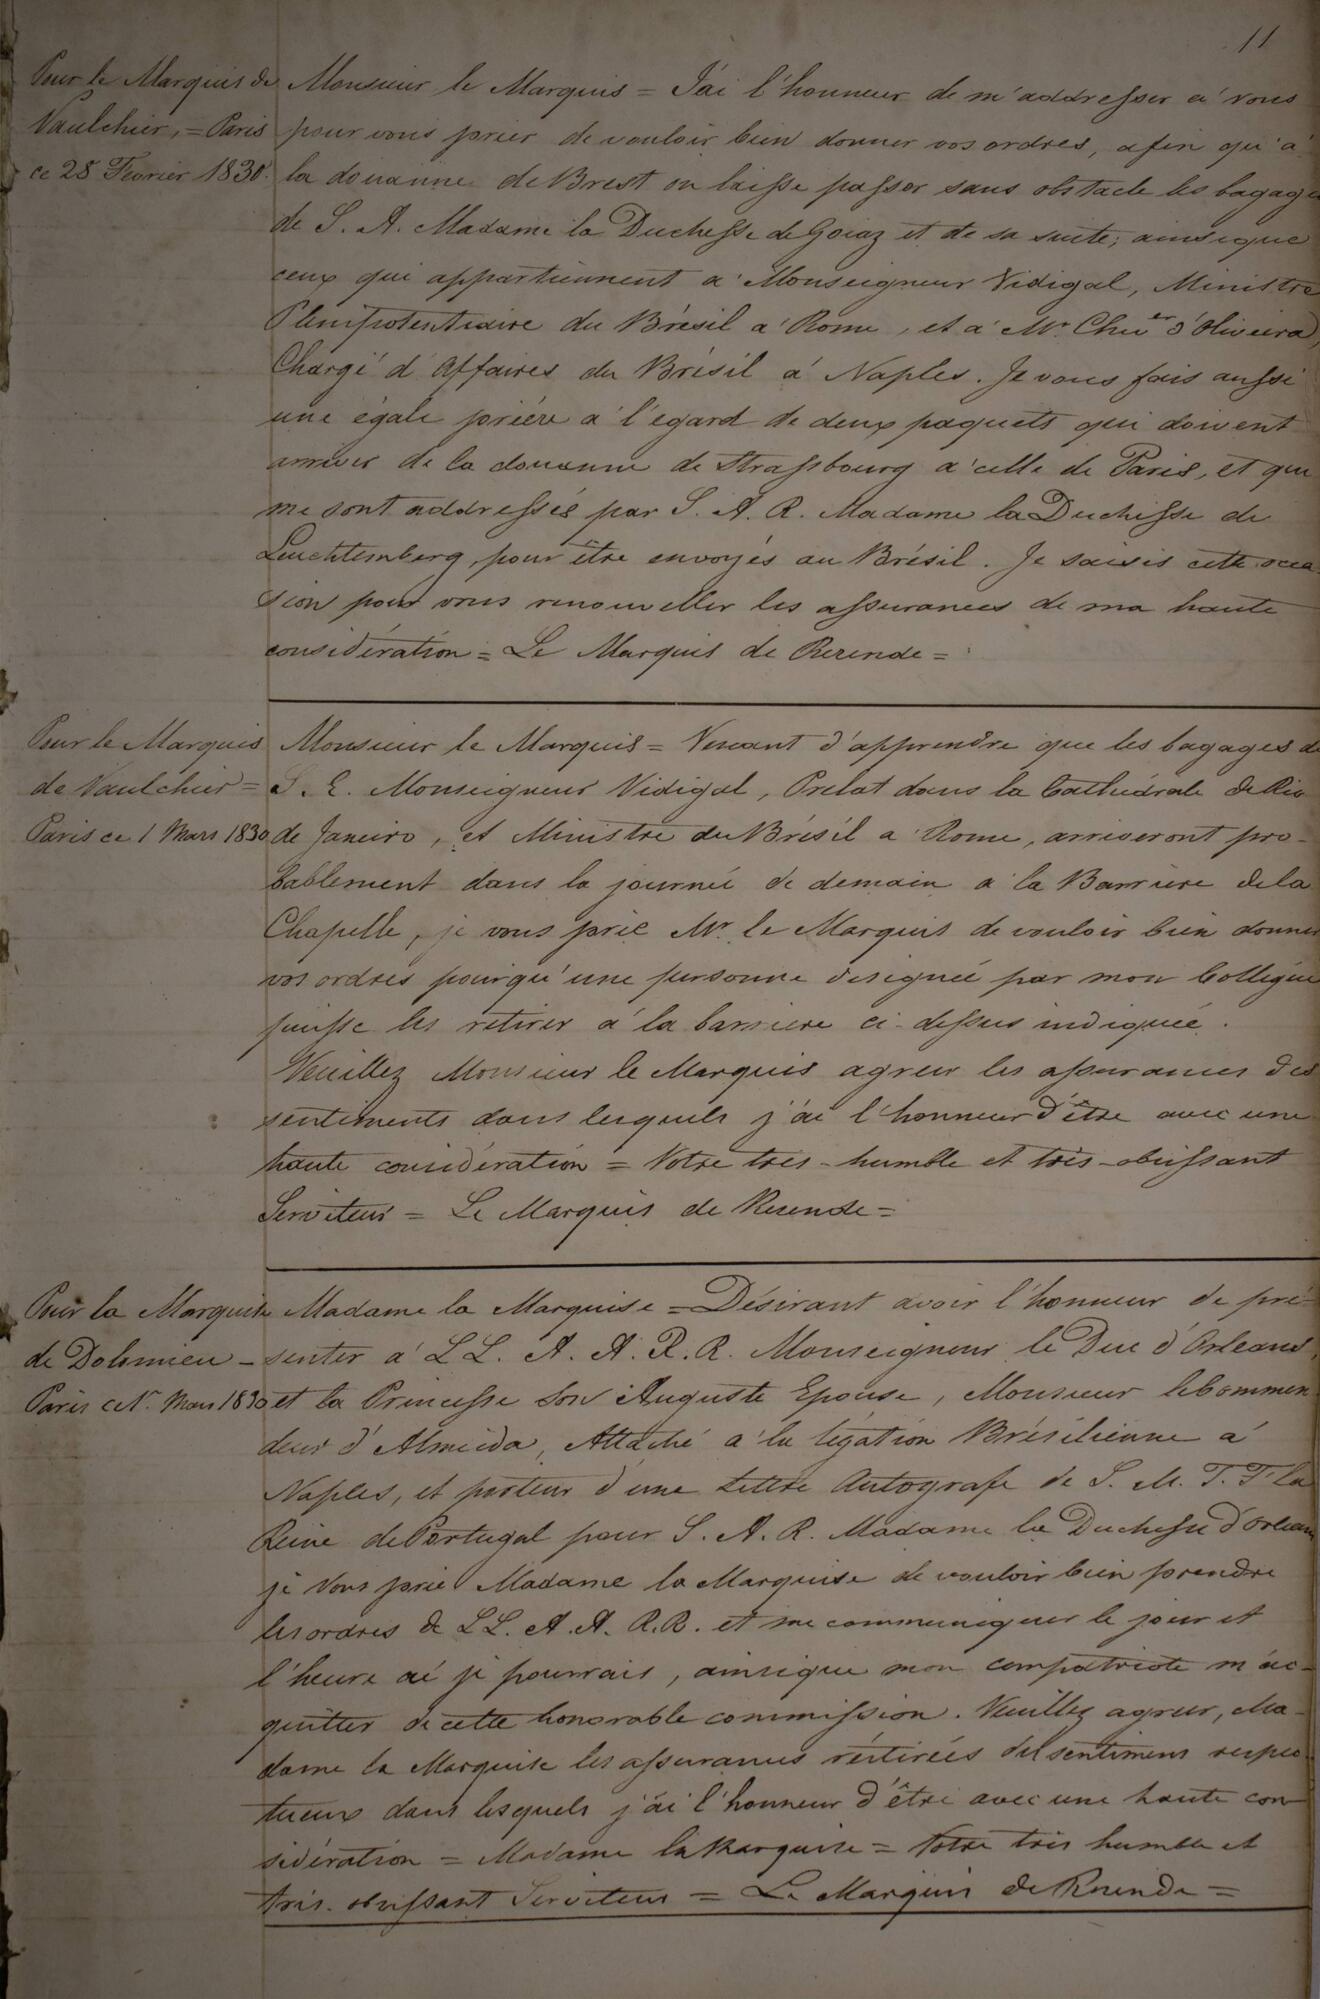 11
Pour le Marquis de
Vaulchier, = Paris
ce 28 Fevrier 1830.
Monsieur le Marquis = J'ai l'honneur de m'addresser à vous
pour vous prier de vouloir bien donner vos ordres, afin qu'à
la douanne de Brest on laisse passer sans obstacle les bagages
de S. A. Madame la Duchesse de Goiaz et de sa suite; ainsi que
ceux qui appartiennent a' Monseigneur Vidigal, Ministre
Plenipotentiaire du Brésil a' Rome, et a' Mr. Chev.er d'Oliveira,
Chargé d'Affaires du Brésil á Naples. Je vous fais aussi
une égale prière a l'egard de deux paquets qui doivent
arriver de la douanne de Strassbourg a' celle de Paris, et qui
me sont addressés par S. A. R. Madame la Duchesse de
Leuchtemberg, pour être envoyés au Brésil. Je saisis cette occa-
sion pour vous renouveller les assurances de ma haute
considération = Le Marquis de Rezende =
Pour le Marquis
de Vaulchier =
Paris ce 1 Mars 1830
Monsieur le Marquis = Venant d'apprendre que les bagages de
S. E. Monseigneur Vidigal, Prelat dans la Cathédrale de Rio
de Janeiro, et Ministre du Brésil a Rome, arriveront pro-
bablement dans la journée de demain a la Barriere de la
Chapelle, je vous prie Mr. le Marquis de vouloir bien donner
vos ordres pourqu'une personne designée par mon Collégue
puisse les retirer a' la barriere ci-dessus indiquée.
Veuillez Monsieur le Marquis agreer les assurances des
sentiments dans lesquels j'ai l'honneur d'être avec une
haute considération = Votre très-humble et très-obeissant
Serviteur = Le Marquis de Resende =
Pour la Marquise
de Dolomieu -
Paris ce 1r. Mars 1830
Madame la Marquise = Désirant avoir l'honneur de pré-
senter a' L L. A. A. R. R. Monseigneur le Duc d'Orleans,
et la Princesse Son Auguste Epouse, Monsieur le Commen-
deur d'Almeida, Attaché a' la légation Brésilienne a'
Naples, et porteur d'une Lettre Autografe de S. M. T. F. la
Reine de Portugal pour S. A. R. Madame la Duchesse d'Orleans
je Vous prie Madame la Marquise de vouloir bien prendre
les ordres de L L. A. A. R. R. et me communiquer le jour et
l'heure où je pourrais, ainsi que mon compatriote m'ac-
quitter de cette honorable commission. Veuillez agreer, Ma-
dame la Marquise les assurances réitirées del sentimens respec-
tueux dans lesquels j'ai l'honneur d'être avec une haute con-
sidération = Madame la Marquise = Votre très humble et
très-obeissant Serviteur = Le Marquis de Resende =